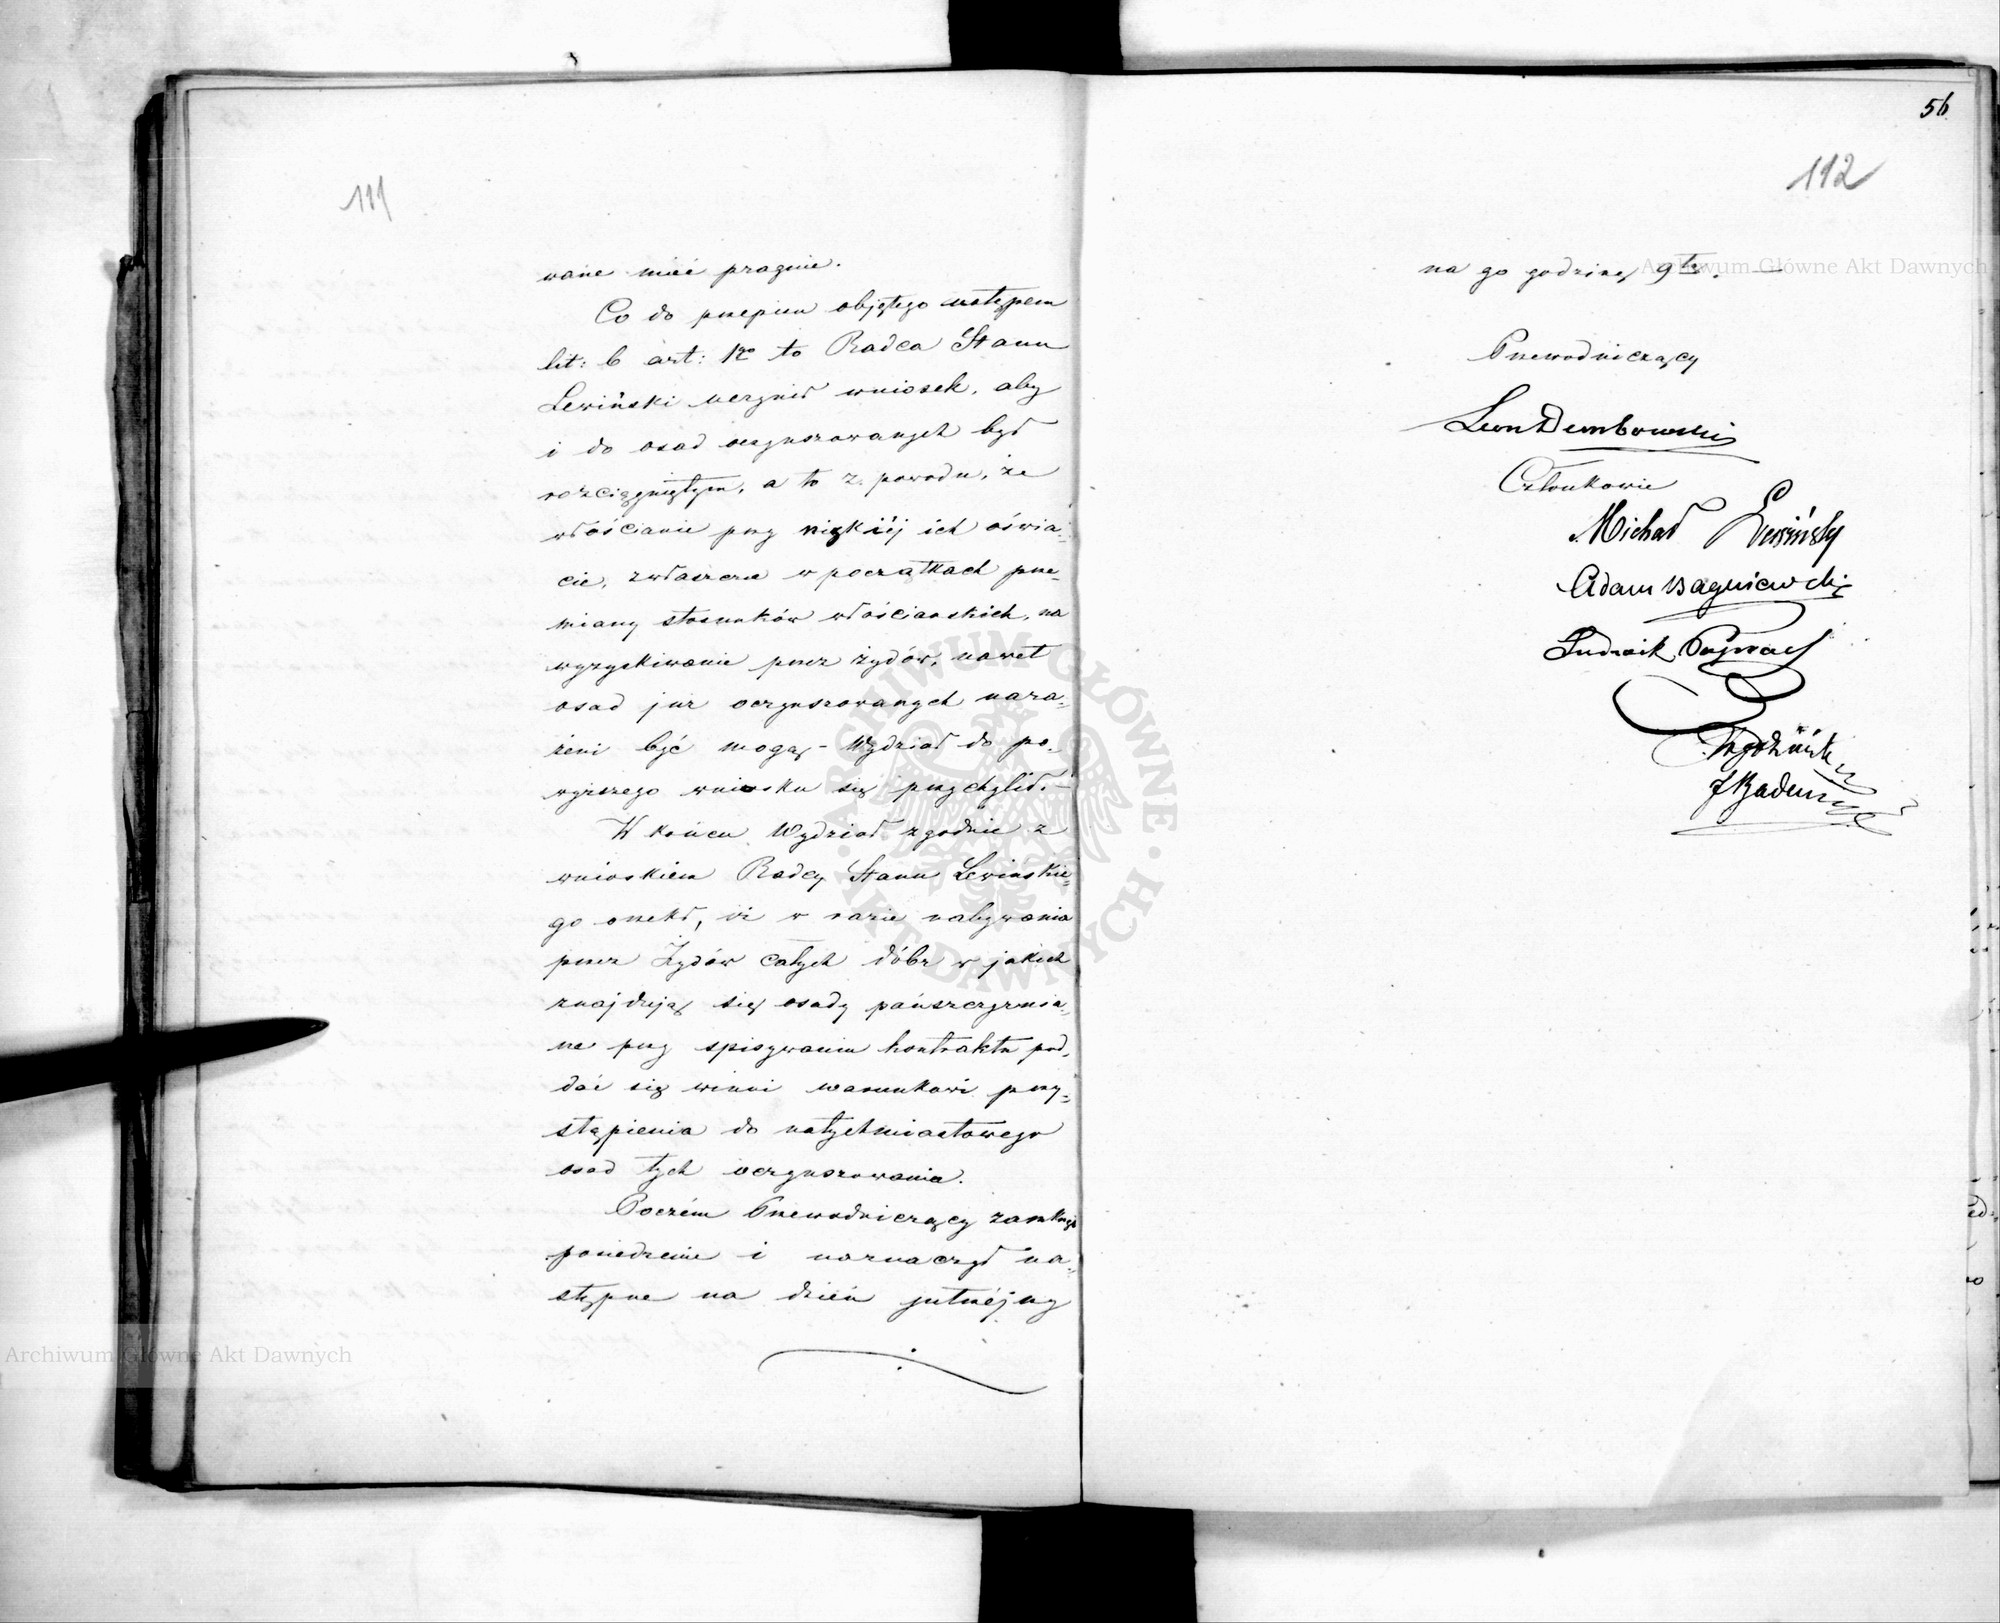 111
wane mieć pragnie.
Co do przepisu objętego ustępem
lit: b art: 12o to Radca Stanu
Lewiński uczynił wniosek, aby
i do osad oczynszowanych był
rozciągniętym, a to z powodu, że
włościanie przy nizkiéj ich oświa=
cie, zwłaszcza w początkach prze=
miany stosunków włościańskich, na
wyzyskiwanie przez żydów, nawet
osad już oczynszowanych nara=
żeni być mogą – Wydział do po=
wyższego wniosku się przychylił.–
W końcu Wydział zgodnie z
wnioskiem Radcy Stanu Lewińskie=
go orzekł, iż w razie nabywania
przez Żydów całych dóbr w jakich
znajdują się osady pańszczyznia=
ne przy spisywaniu kontraktu pod=
dać się winni warunkowi przy=
stąpienia do natychmiastowego
osad tych oczynszowania.
Poczém Przewodniczący zamknął
posiedzenie i naznaczył na=
stępne na dzień jutrzéjszy
56
112
na go godzinę 9tą. —
Przewodniczący
Leon Dembowski
Członkowie
Michał Lewiński
Adam Bagniewski
Ludwik
Archiwum Główne Akt Dawnych
Archiwum Główne Akt Dawnych
ARCHIWUM GŁÓWNE · AKT DAWNYCH ·